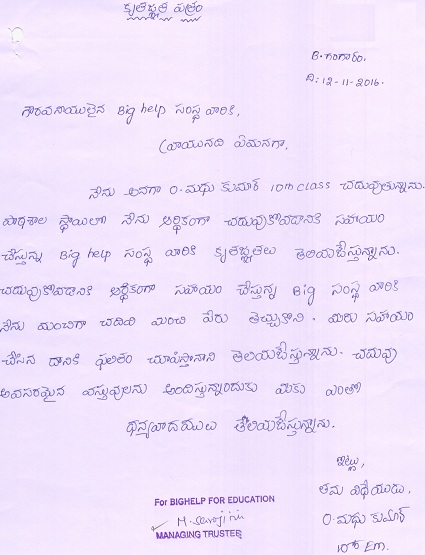 కృతజ్ఞత పత్రం
B. గంగారం.
ది: 12-11-2016.
గౌరవనీయులైన Big help సంస్థ వారికి,
వ్రాయునది ఏమనగా,
నేను అనగా O. మధు కుమార్ 10th class చదువుతున్నాను.
పాఠశాల స్థాయిలో నేను ఆర్థికంగా చదువుకోవడానికి సహాయం
చేస్తున్న Big help సంస్థ వారికి కృతజ్ఞతలు తెలియజేస్తున్నాను.
చదువుకోవడానికి ఆర్థికంగా సహాయం చేస్తున్న Big సంస్థ వారికి
నేను మంచిగా చదివి మంచి పేరు తెచ్చుకొని. మీరు సహాయం
చేసిన దానికి ఫలితం చూపిస్తానని తెలియజేస్తున్నాను. చదువు
అవసరమైన వస్తువులను అందిస్తున్నందుకు మీకు ఎంతో
ధన్యవాదములు తెలియజేస్తున్నాను.
ఇట్లు,
తమ విధేయుడు,
O. మధు కుమార్
10th Em.
For BIGHELP FOR EDUCATION
M. Sarojini
MANAGING TRUSTEE